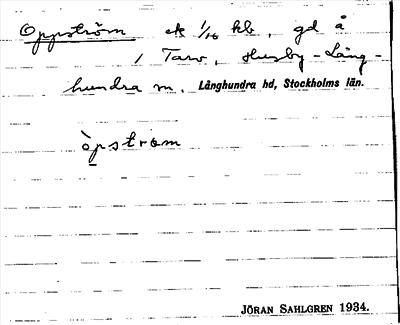 Oppström ek 1/16 kb, gd å
1 Tarv, Husby-Lång-
hundra sn. Långhundra hd, Stockholms län.
òpstrøm
JÖRAN SAHLGREN 1934.